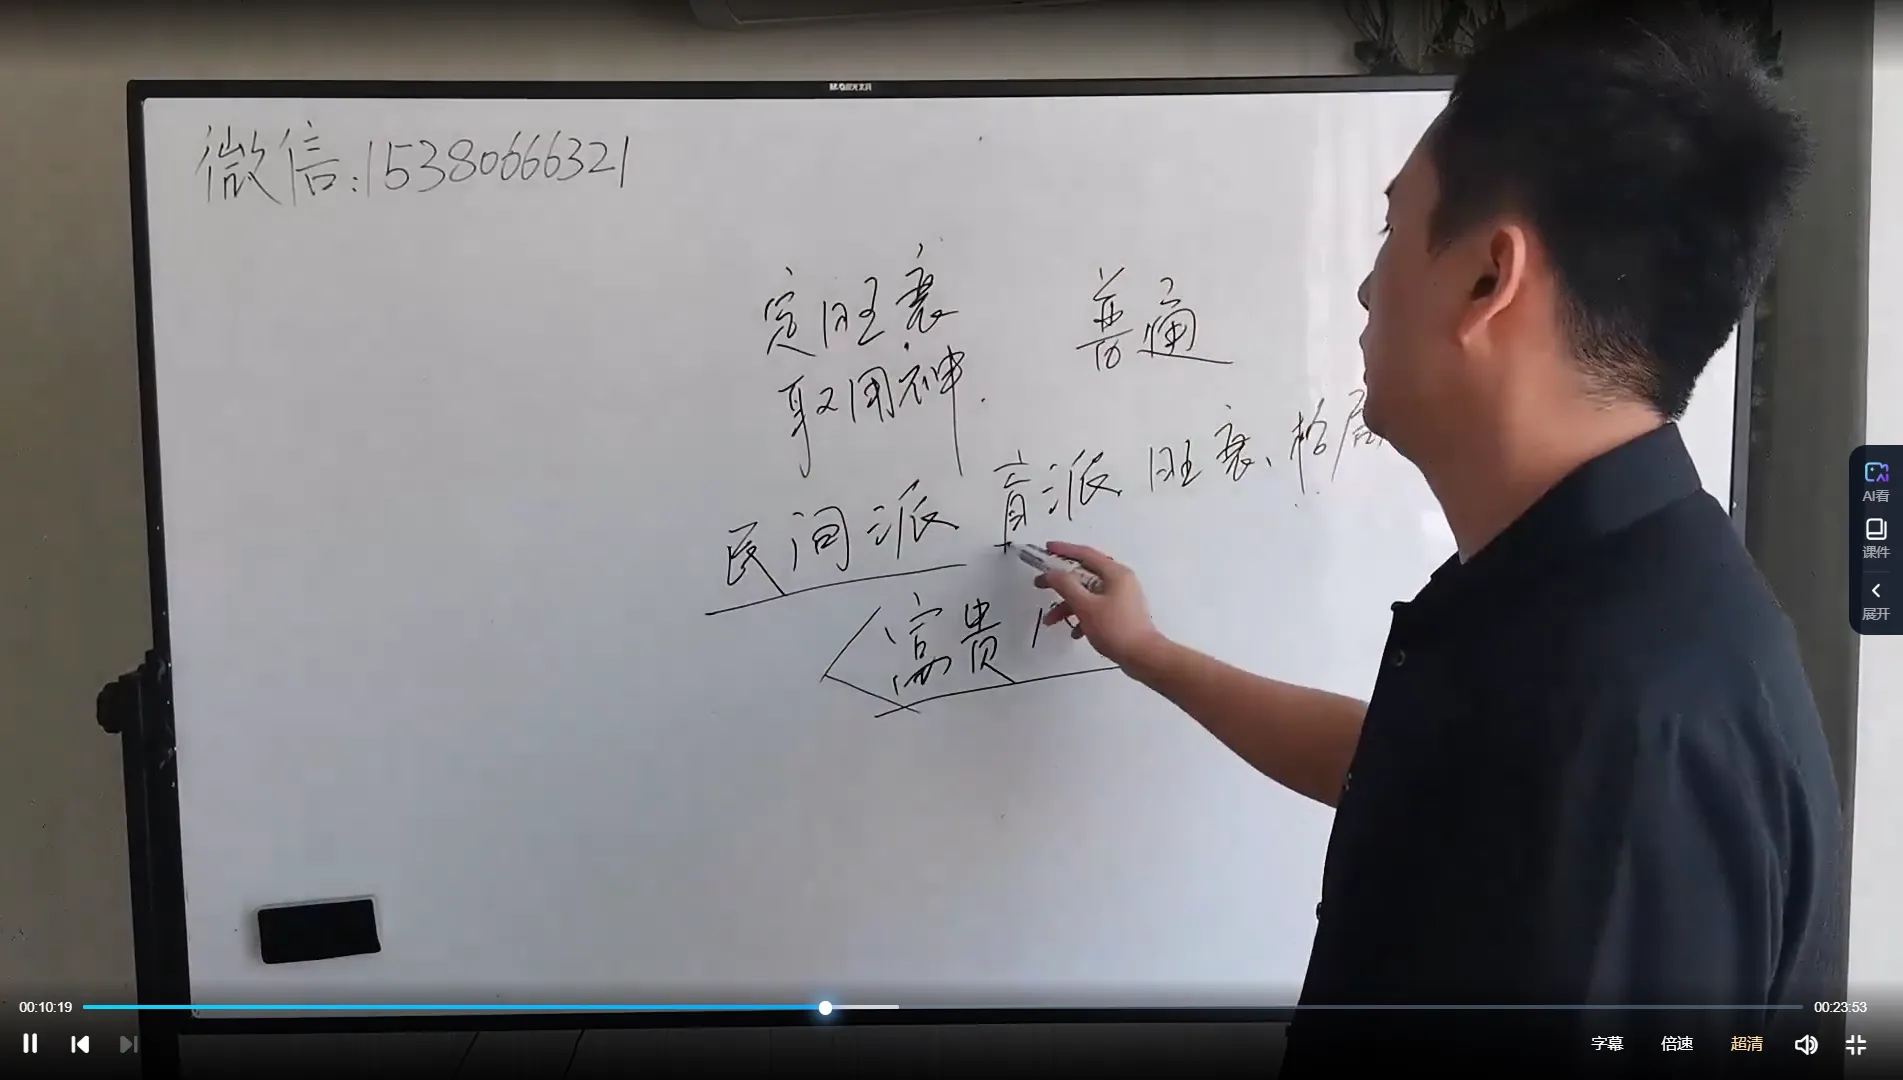 M&G晨光文具
微信:15380666321
定旺衰 普通
取用神.
民间派 盲派 旺衰、格局
富贵
AI看
课件
展开
00:10:19
00:23:53
字幕 倍速 超清